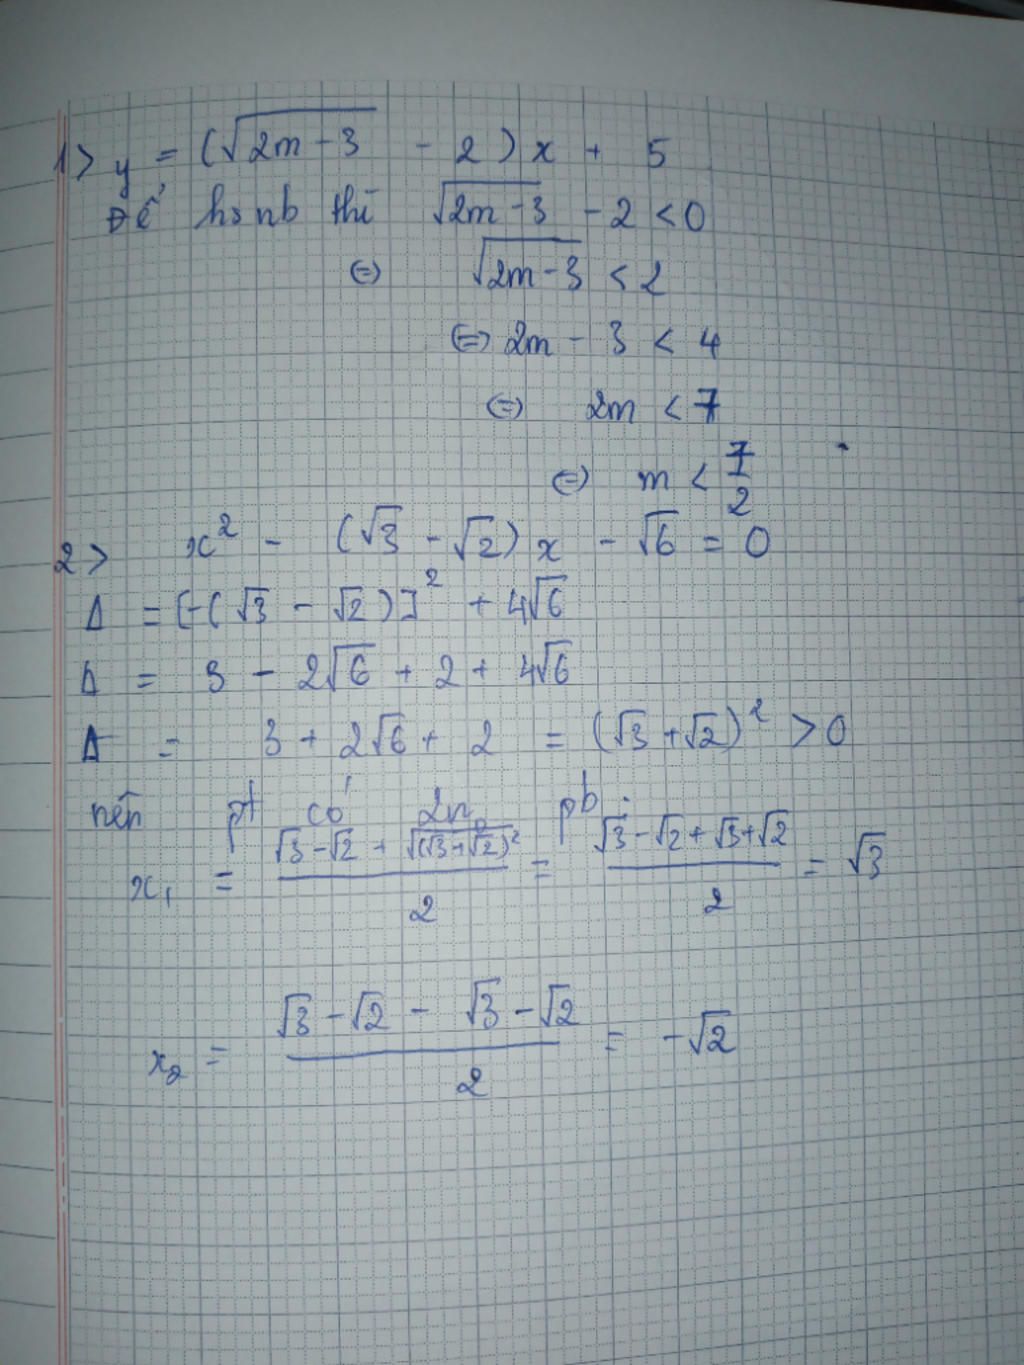 1> y = (√(2m-3) - 2)x + 5
Để hsnb thì √(2m-3) - 2 < 0
⇔ √(2m-3) < 2
⇔ 2m - 3 < 4
⇔ 2m < 7
⇔ m < 7/2
2> x² - (√3 - √2)x - √6 = 0
Δ = [-(√3 - √2)]² + 4√6
Δ = 3 - 2√6 + 2 + 4√6
Δ = 3 + 2√6 + 2 = (√3 + √2)² > 0
nên pt có 2n₀ pb :
x₁ = (√3 - √2 + √((√3+√2)²))/2 = (√3 - √2 + √3 + √2)/2 = √3
x₂ = (√3 - √2 - √3 - √2)/2 = -√2